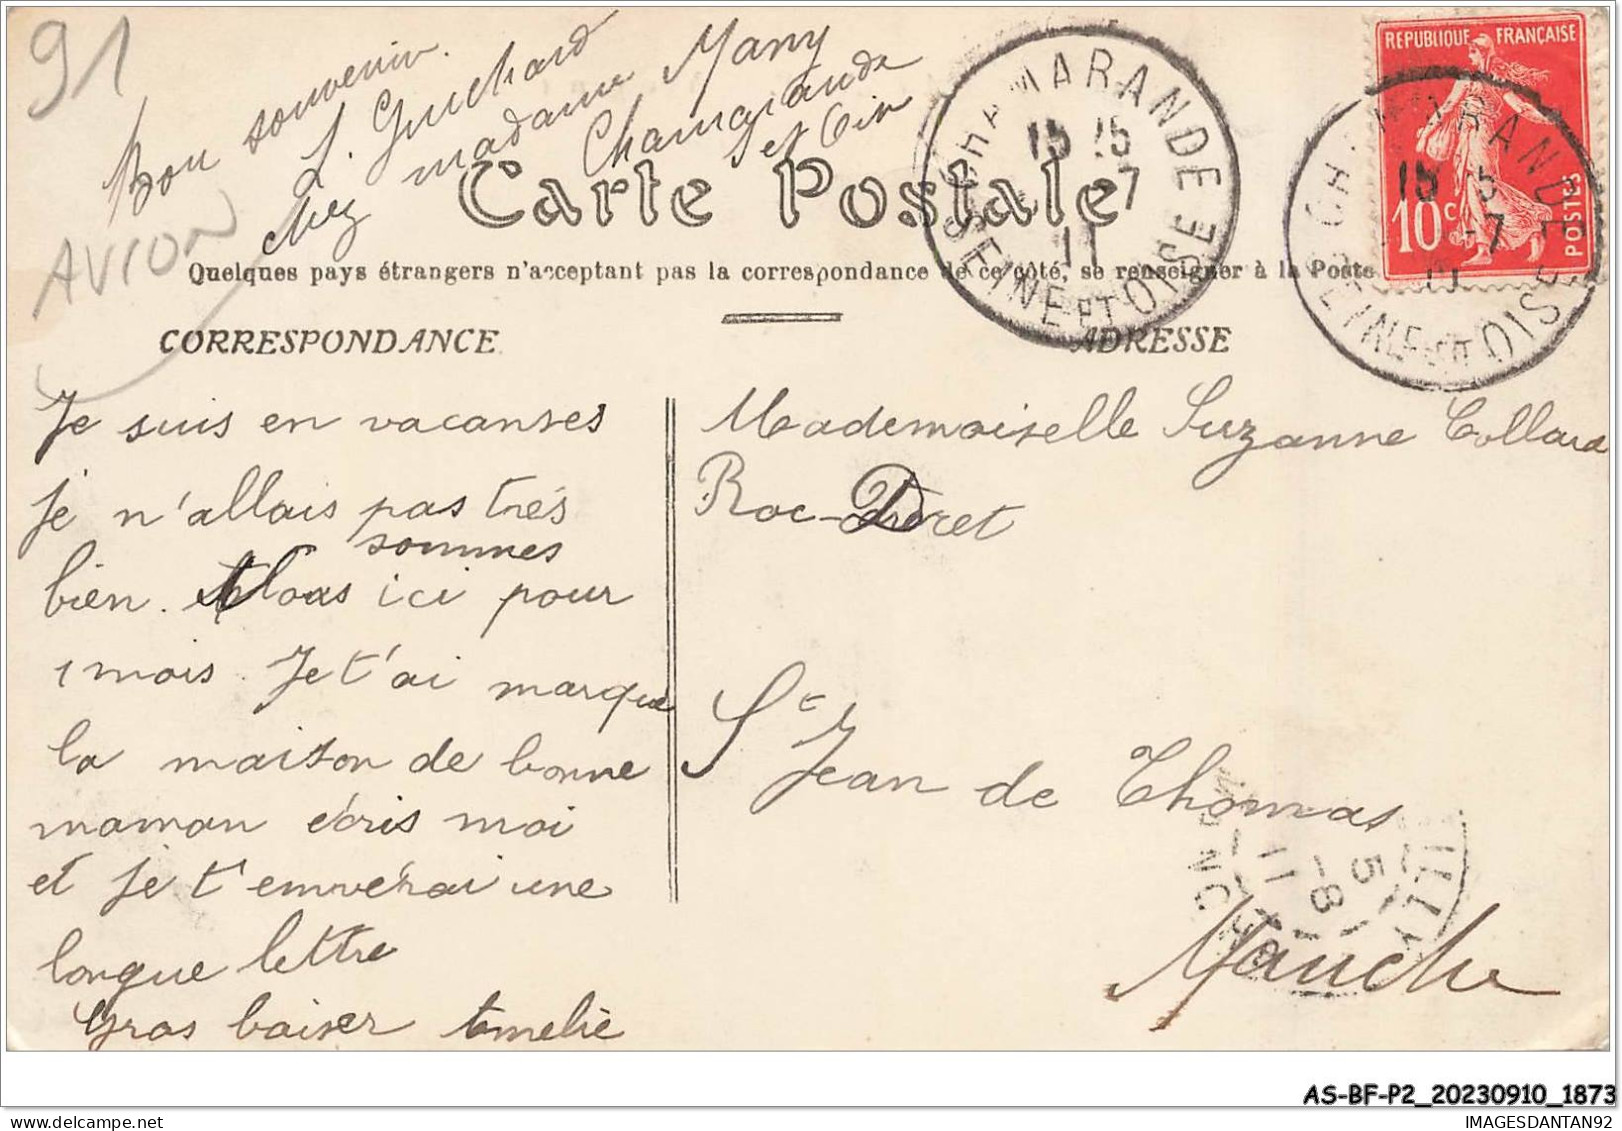 91
AVION
Bon souvenir.
J. Guichard
chez madame Many
Chamarande
Set Oise
Carte Postale
Quelques pays étrangers n'acceptant pas la correspondance de ce côté, se renseigner à la Poste
CORRESPONDANCE
ADRESSE
CHAMARANDE
15 15
-7
11
SEINE-ET-OISE
REPUBLIQUE FRANÇAISE
10c
POSTES
CHAMARANDE
15 5
-7
11
SEINE-ET-OISE
Je suis en vacanses
je n'allais pas très
sommes
bien. Nous ici pour
1 mois. Je t'ai marque
la maison de bonne
maman écris moi
et je t'enverai une
longue lettre
Gros baiser Amelie
Mademoiselle Suzanne Collard
Roc-Duret
St Jean de Thomas
Manche
5
-8
11
AS-BF-P2_20230910_1873
IMAGESDANTAN92